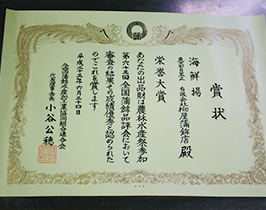 賞状
海鮮揚
有限会社 柳屋蒲鉾店 殿
栄誉大賞
あなたの出品財は農林水産祭参加
第六十三回全国蒲鉾品評会において
審査の結果その成績優秀と認められた
のでこれを賞します
平成二十三年六月二十四日
全国蒲鉾水産加工業協同組合連合会
代表理事会長 小谷公穂